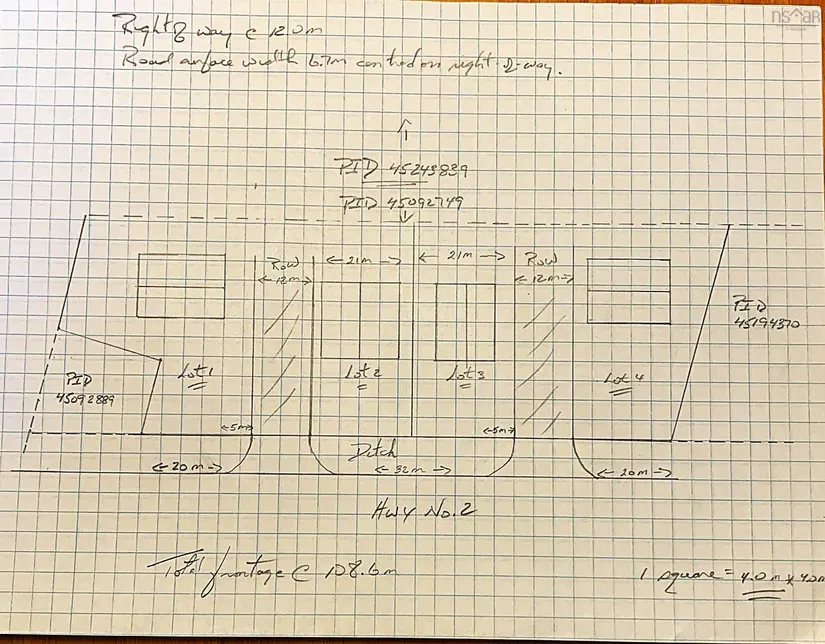 nsAR
Right of way @ 12.0m
Road surface width 6.7m centred on right-of-way.
PID 45243839
PID 45092749
Row
←12m→
←21m→
←21m→
Row
←12m→
PID
45194370
PID
45092889
Lot 1
Lot 2
Lot 3
Lot 4
←5m→
←5m→
Ditch
←20m→
←32m→
←20m→
Hwy No. 2
Total frontage @ 108.6m
1 square = 4.0m x 4.0m